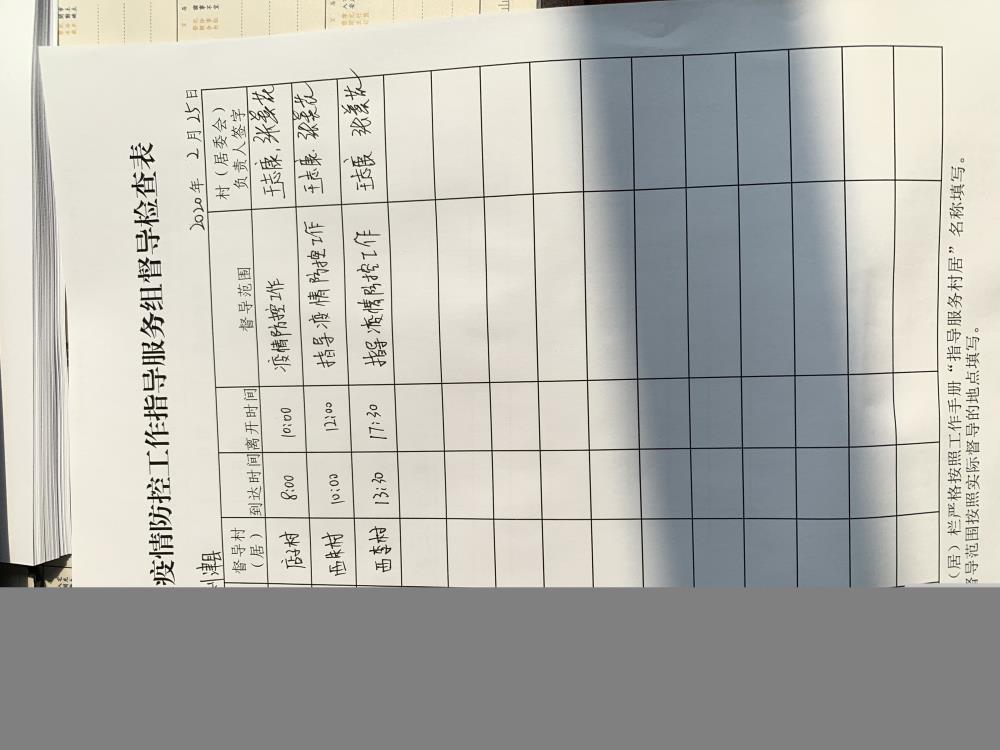 疫情防控工作指导服务组督导检查表
津县
2020年 2月25日
督导村（居） 到达时间 离开时间 督导范围 村（居委会）负责人签字
店子村 8:00 10:00 疫情防控工作 王志康，张美花
西朱村 10:00 12:00 指导疫情防控工作 王志康·张美花
西李村 13:30 17:30 指导疫情防控工作 王志康 张美花
（居）栏严格按照工作手册“指导服务村居”名称填写。
督导范围按照实际督导的地点填写。